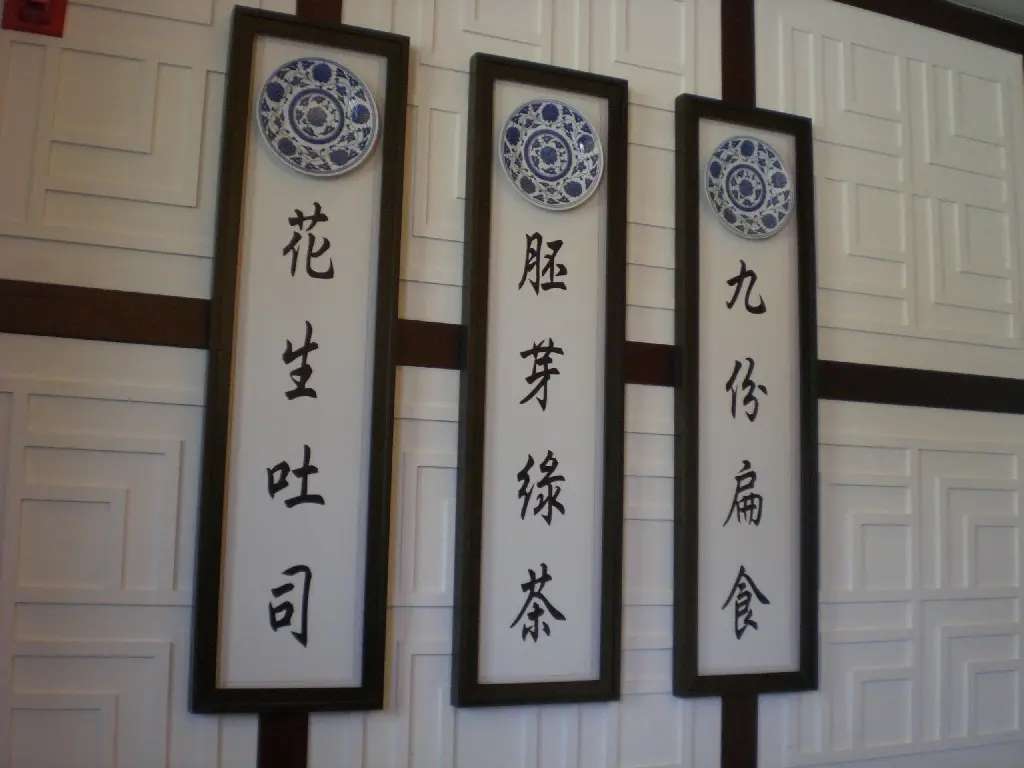 九份扁食
胚芽綠茶
花生吐司